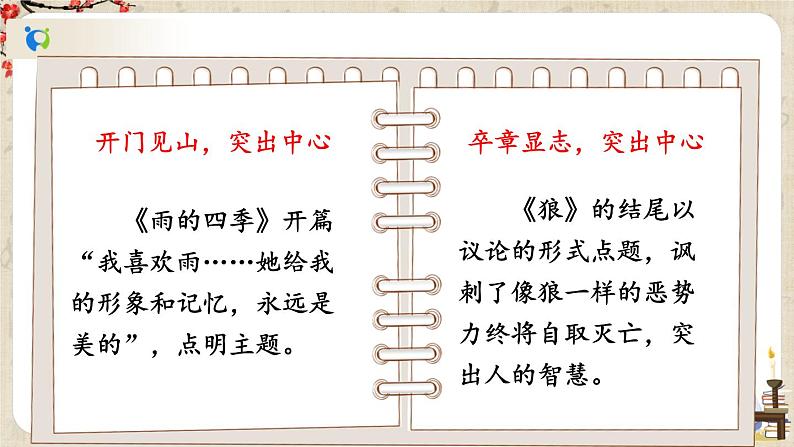 开门见山，突出中心
《雨的四季》开篇
“我喜欢雨……她给我
的形象和记忆，永远是
美的”，点明主题。
卒章显志，突出中心
《狼》的结尾以
议论的形式点题，讽
刺了像狼一样的恶势
力终将自取灭亡，突
出人的智慧。